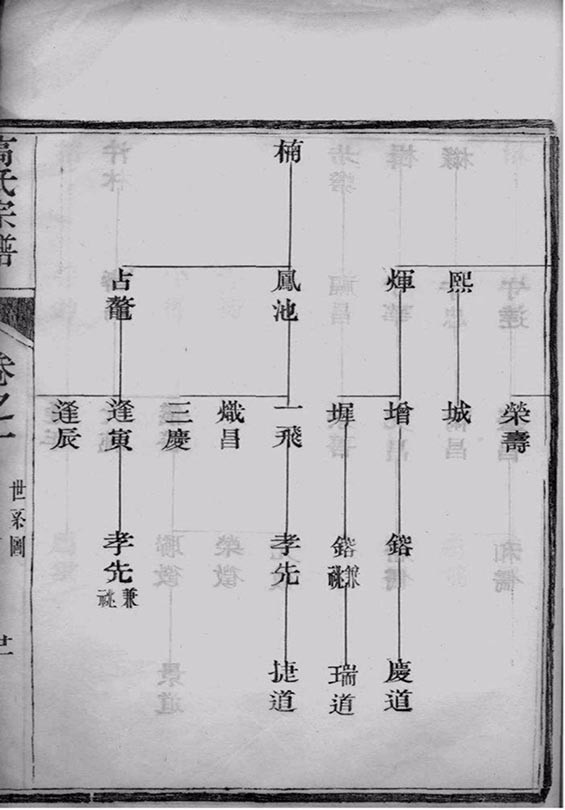 榮壽
熙
城
煇
增
鎔
慶道
墀
鎔兼祧
瑞道
楠
鳳池
一飛
孝先
捷道
熾昌
三慶
占鰲
逢寅
孝先兼祧
逢辰
高氏宗譜
卷之一
世系圖